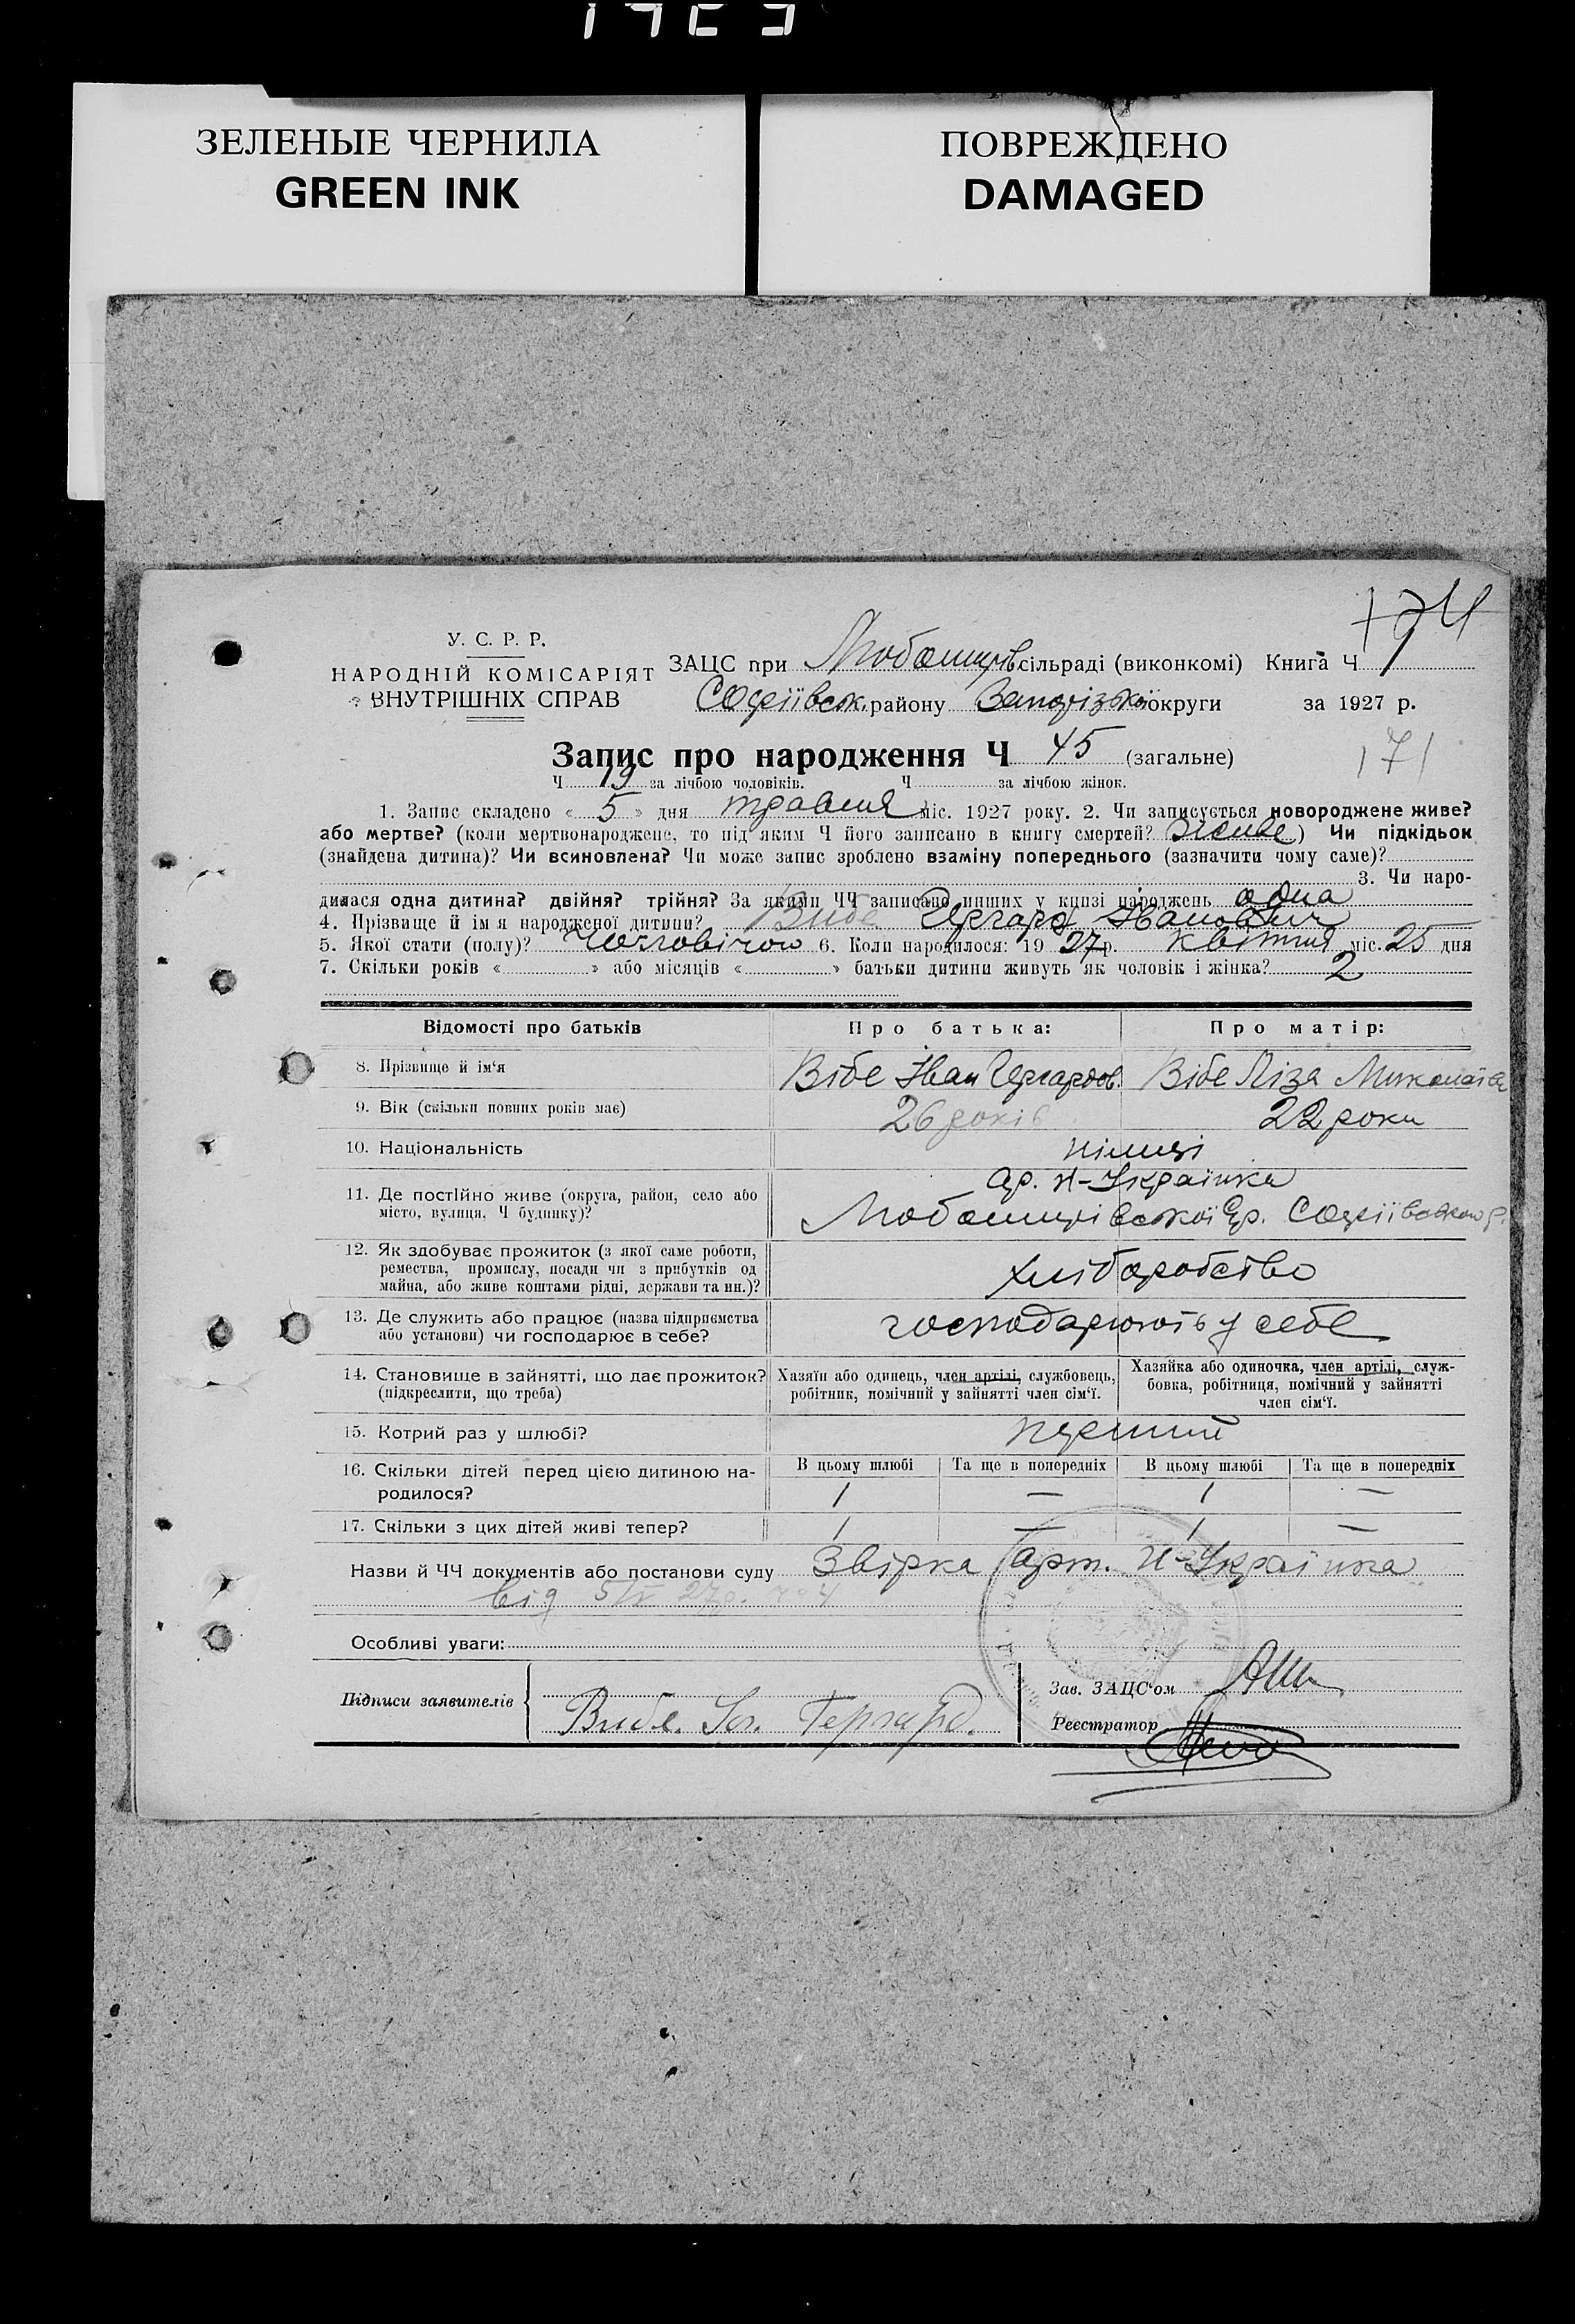 ЗЕЛЕНЫЕ ЧЕРНИЛА
GREEN INK
ПОВРЕЖДЕНО
DAMAGED
У. С. Р. Р.
НАРОДНІЙ КОМІСАРІЯТ
ВНУТРІШНІХ СПРАВ
ЗАЦС при Любомирів. сільраді (виконкомі) Книга Ч
Софіївськ. району Запорізької округи за 1927 р.
171
Запис про народження Ч 45 (загальне)
Ч 19 за лічбою чоловіків. Ч за лічбою жінок.
1. Запис складено « 5 » дня травня міс. 1927 року. 2. Чи записується новороджене живе?
або мертве? (коли мертвонароджене, то під яким Ч його записано в книгу смертей? живе) Чи підкідьок
(знайдена дитина)? Чи всиновлена? Чи може запис зроблено взаміну попереднього (зазначити чому саме)?
3. Чи наро-
дилася одна дитина? двійня? трійня? За якими ЧЧ записано инших у книзі народжень одна
4. Прізвище й ім'я народженої дитини? Вибе Гергард Іванович
5. Якої стати (полу)? Чоловічою 6. Коли народилося: 1927 р. квітня міс. 25 дня
7. Скільки років « » або місяців « » батьки дитини живуть як чоловік і жінка? 2
Відомості про батьків Про батька: Про матір:
8. Прізвище й ім‘я Вібе Іван Гергардов. Вібе Ліза Миколаївн
9. Вік (скільки повних років має) 26 років 22 роки
10. Національність німці
11. Де постійно живе (округа, район, село або
місто, вулиця, Ч будинку)?
ар. Н-Українка
Любомирівської с/р. Софіївського р.
12. Як здобуває прожиток (з якої саме роботи,
ремества, промислу, посади чи з прибутків од
майна, або живе коштами рідні, держави та ин.)?
хліборобство
13. Де служить або працює (назва підприємства
або установи) чи господарює в себе?
господарюють у себе
14. Становище в зайнятті, що дає прожиток?
(підкреслити, що треба)
Хазяїн або одинець, член артілі, службовець,
робітник, помічний у зайнятті член сім‘ї.
Хазяйка або одиночка, член артілі, служ-
бовка, робітниця, помічний у зайнятті
член сім‘ї.
15. Котрий раз у шлюбі? перший
16. Скільки дітей перед цією дитиною на-
родилося?
В цьому шлюбі Та ще в попередніх В цьому шлюбі Та ще в попередніх
1 — 1 —
17. Скільки з цих дітей живі тепер? 1 — 1 —
Назви й ЧЧ документів або постанови суду Звірка арт. Н-Українка
від 5/V 27р. № 4
Особливі уваги:
Підписи заявителів
Вибе. Ів. Гергард.
Зав. ЗАЦС‘ом
Реєстратор